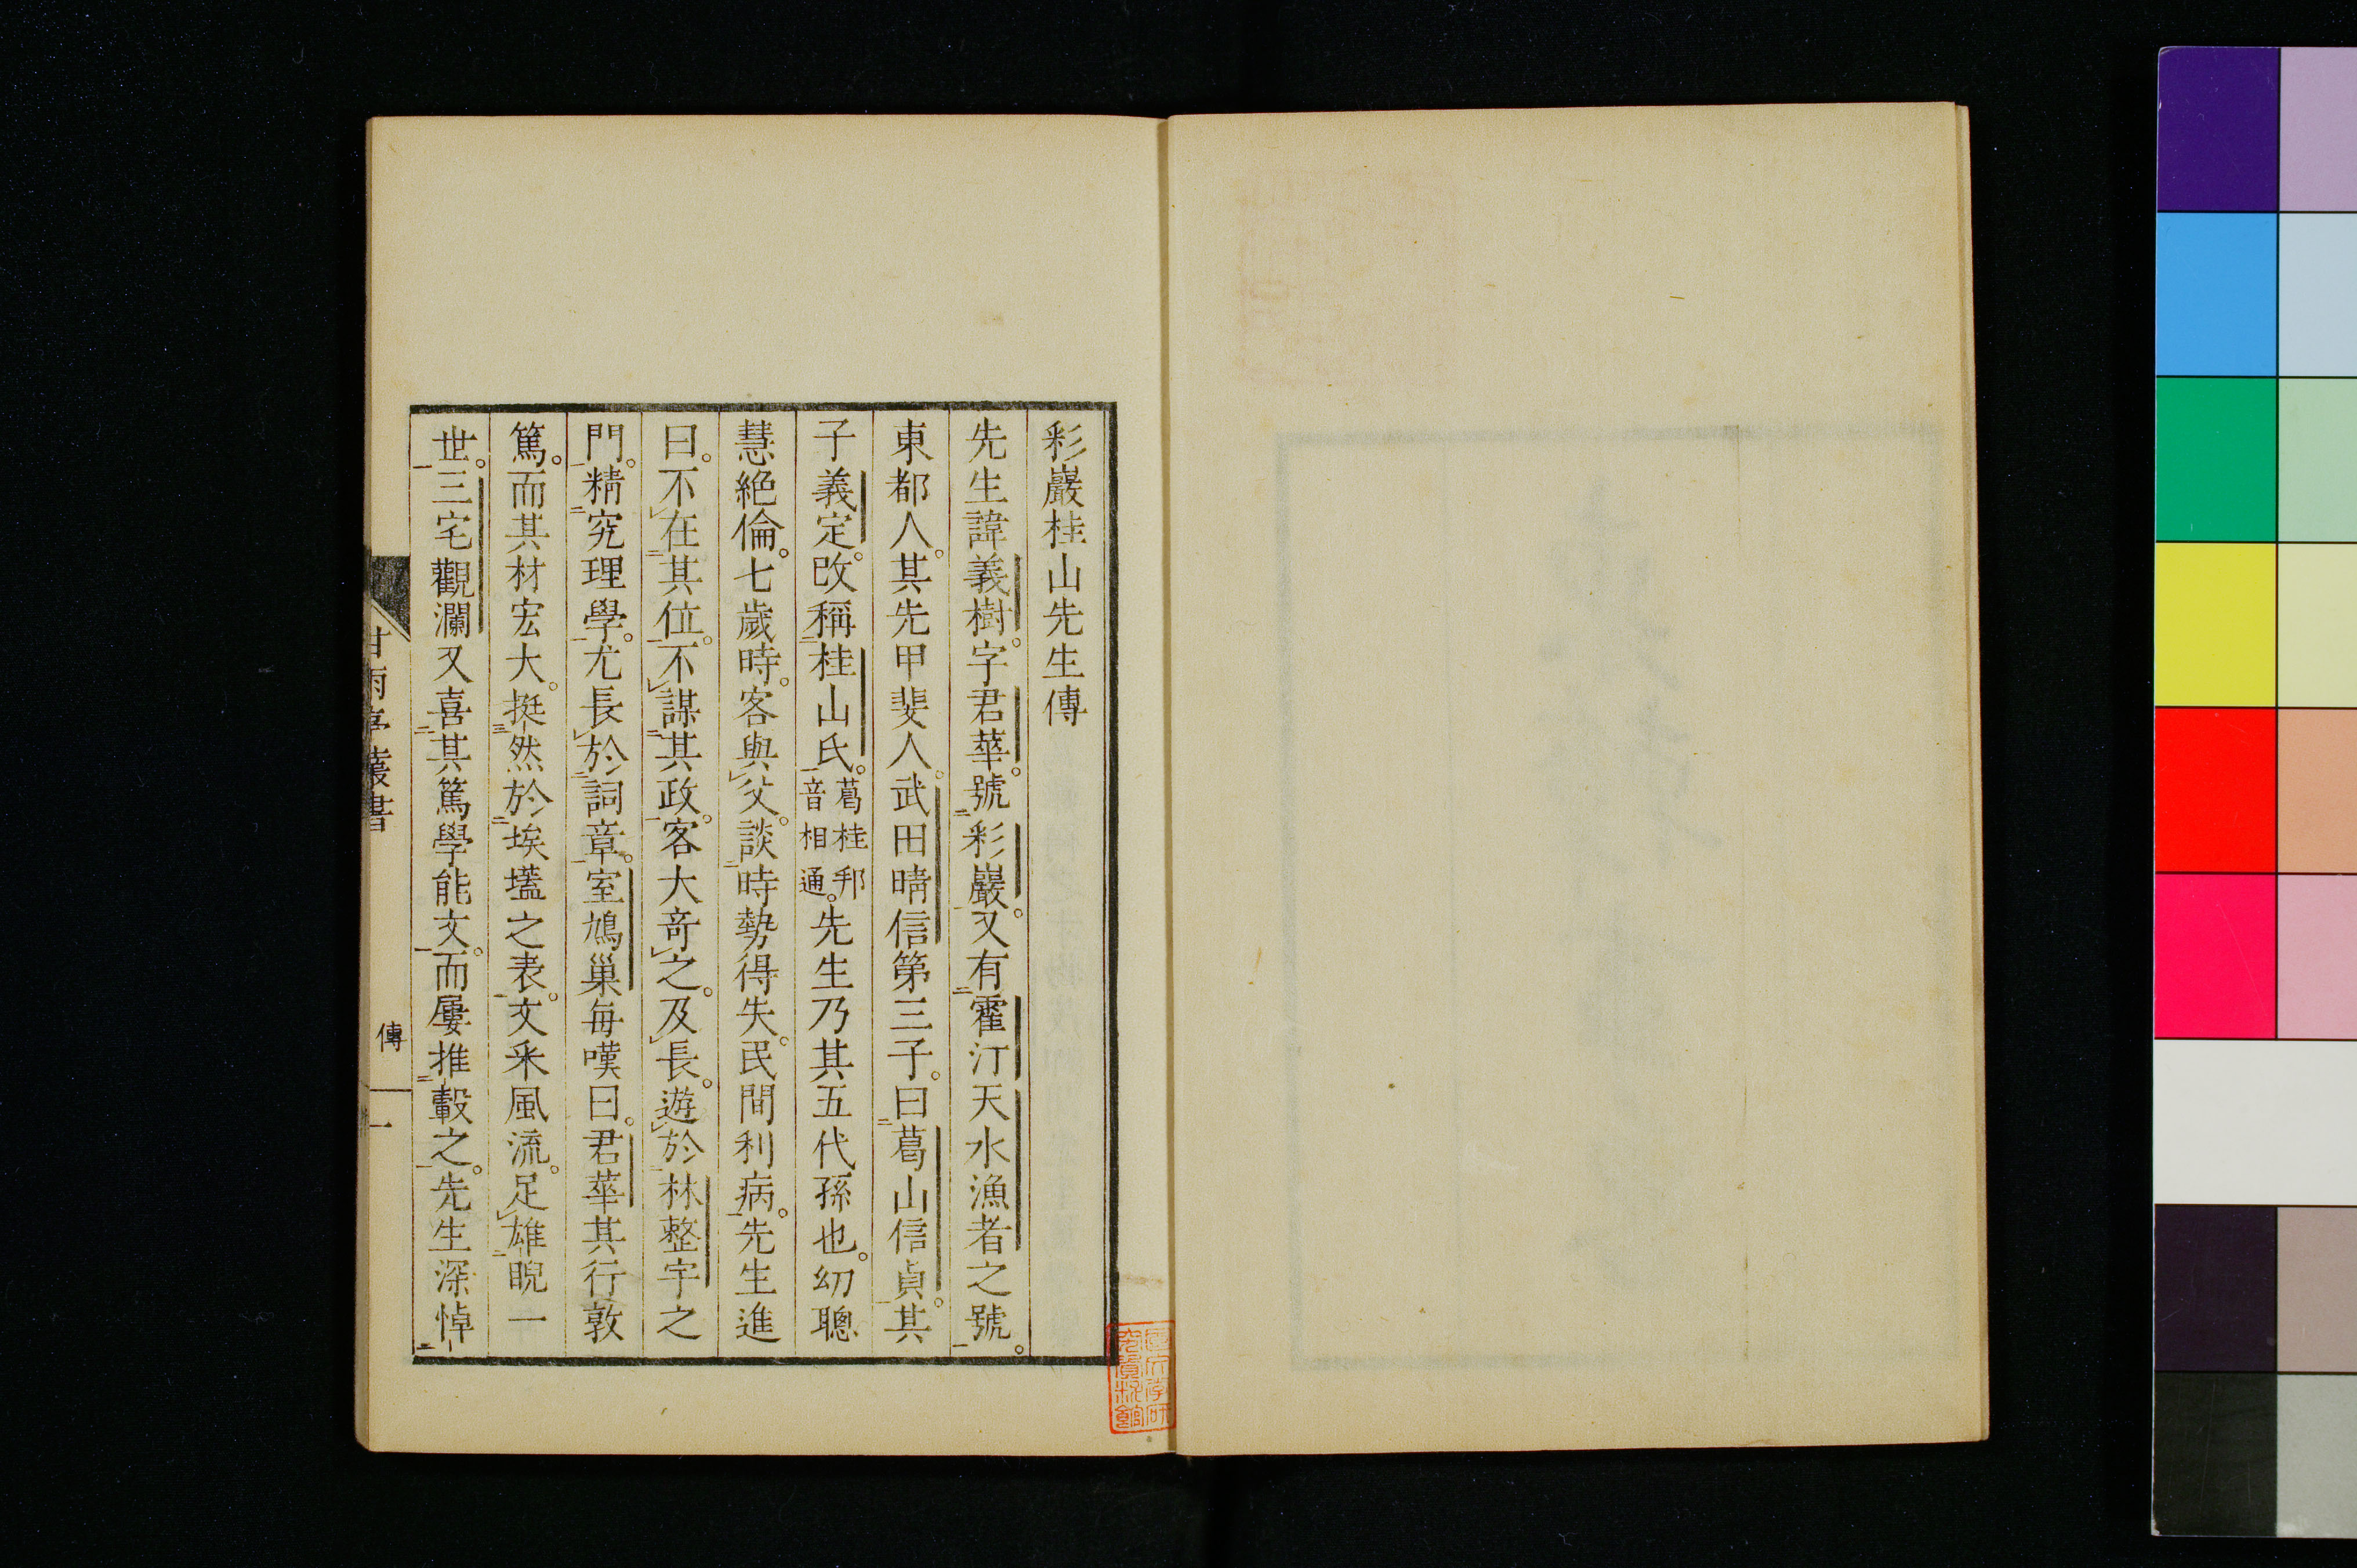 彩巖桂山先生傳
先生諱義樹。字君華。號彩巖。又有霍汀天水漁者之號。
東都人。其先甲斐人。武田晴信第三子。曰葛山信貞。其
子義定。改稱桂山氏。葛桂邦音相通。先生乃其五代孫也。幼聰
慧絶倫。七歲時。客與父。談時勢得失。民間利病。先生進
曰。不在其位。不謀其政。客大奇之。及長。遊於林整宇之
門。精究理學。尤長於詞章。室鳩巢每嘆曰。君華其行敦
篤。而其材宏大。挺然於埃壒之表。文采風流。足雄睨一
世。三宅觀瀾又喜其篤學能文。而屢推轂之。先生深悼
甘雨亭叢書
傳
一
國文學研究資料館